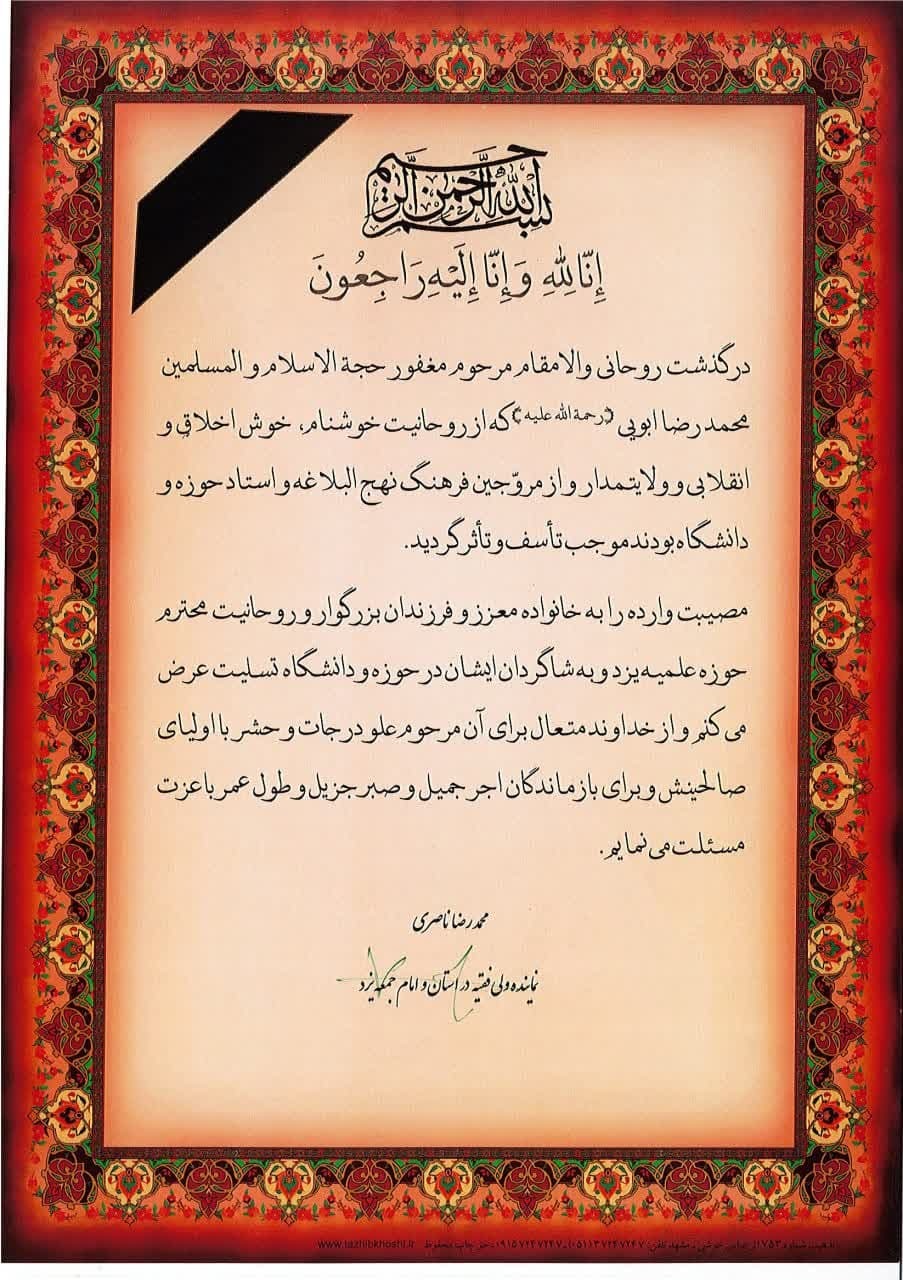 بسم الله الرحمن الرحیم
إِنَّا لِلّٰهِ وَ إِنَّا إِلَیْهِ رَاجِعُونَ
درگذشت روحانی والامقام مرحوم مغفور حجة الاسلام و المسلمین
محمد رضا ابویی (رحمة الله علیه) که از روحانیت خوشنام، خوش اخلاق و
انقلابی و ولایتمدار و از مروّجین فرهنگ نهج البلاغه و استاد حوزه و
دانشگاه بودند موجب تأسف و تأثر گردید.
مصیبت وارده را به خانواده معزز و فرزندان بزرگوار و روحانیت محترم
حوزه علمیه یزد و به شاگردان ایشان در حوزه و دانشگاه تسلیت عرض
می کنم و از خداوند متعال برای آن مرحوم علو درجات و حشر با اولیای
صالحینش و برای بازماندگان اجر جمیل و صبر جزیل و طول عمر با عزت
مسئلت می نمایم.
محمد رضا ناصری
نماینده ولی فقیه در استان و امام جمعه یزد
شماره ۷۵۳ مشهد تلفن: ۷۲۴۷۲۴۷ حق چاپ محفوظ www.tazhibkhoshi.ir